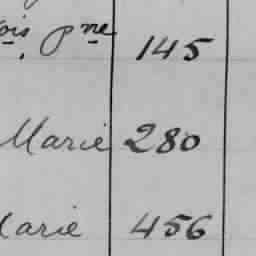 ois pne 145
Marie 280
Marie 456